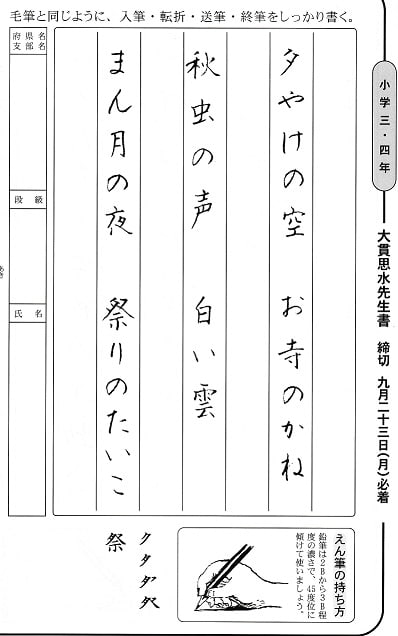 毛筆と同じように、入筆・転折・送筆・終筆をしっかり書く。
小学三・四年
大貫思水先生書　締切　九月二十三日(月)必着
夕やけの空　お寺のかね
秋虫の声　白い雲
まん月の夜　祭りのたいこ
府県名
支部名
段級
氏名
えん筆の持ち方
鉛筆は2Bから3B程
度の濃さで、45度位に
傾けて使いましょう。
祭